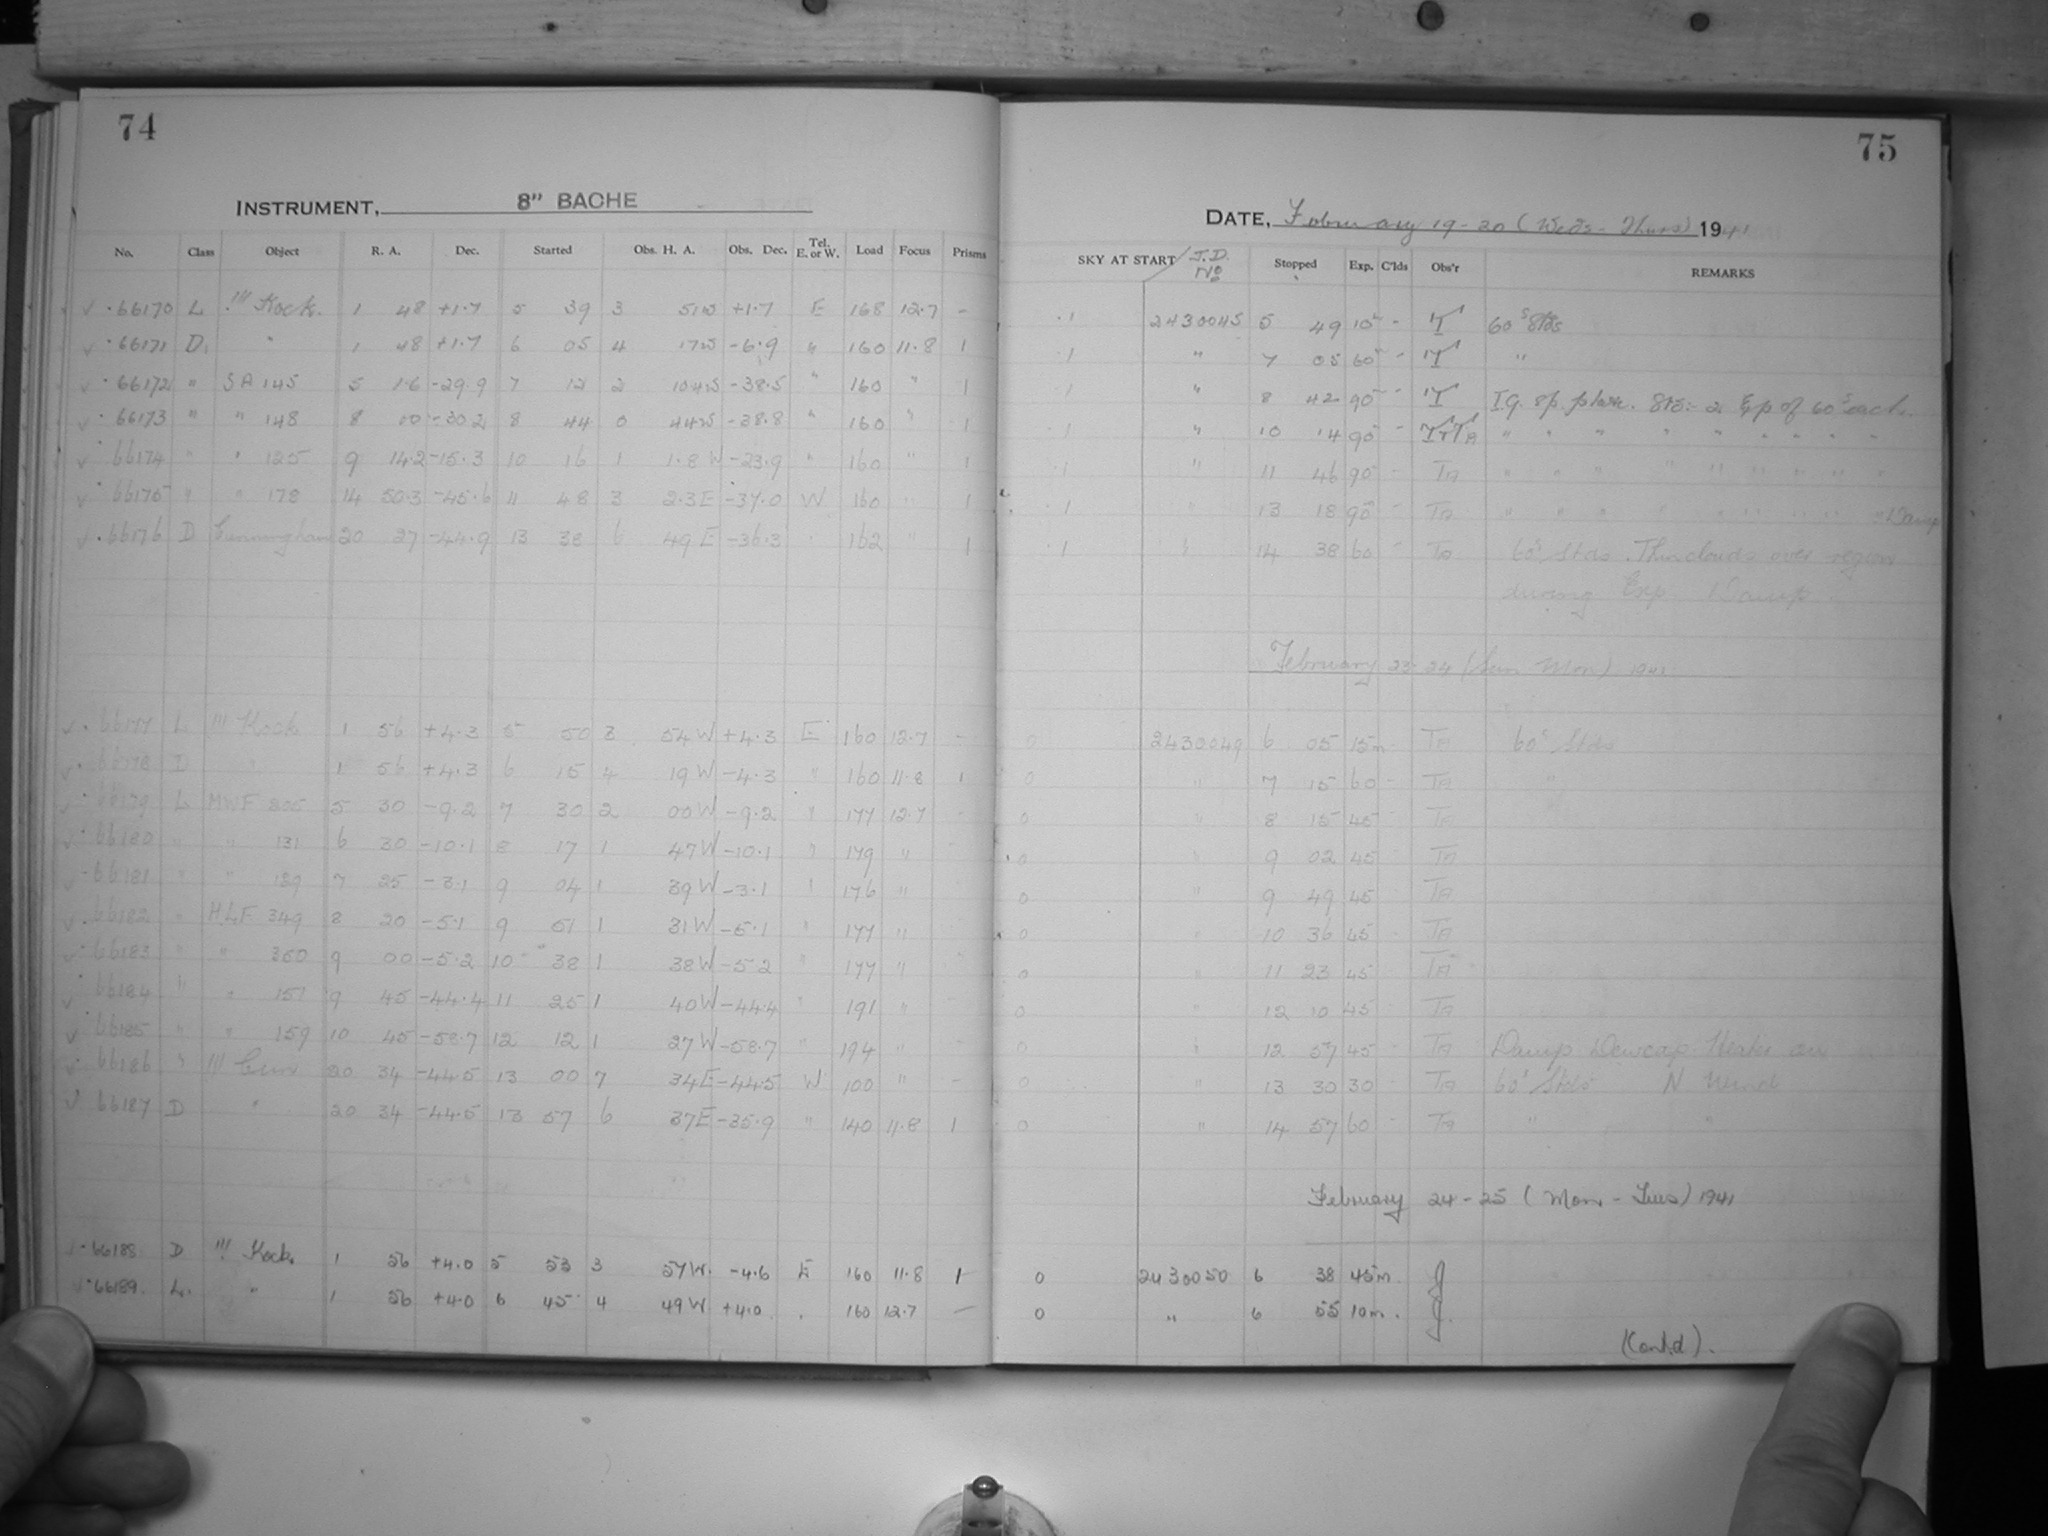 74
INSTRUMENT, 8" BACHE
No. Class Object R. A. Dec. Started Obs. H. A. Obs. Dec. Tel. E. or W. Load Focus Prisms
66170 L !!! Kock. 1 48 +1.7 5 39 3 51W +1.7 E 168 12.7 -
66171 D. " 1 48 +1.7 6 05 4 17W -6.9 " 160 11.8 1
66172 " SA 145 5 1.6 -29.9 7 12 2 10.4W -38.5 " 160 " 1
66173 " " 148 8 00 -30.2 8 44 0 44W -38.8 " 160 " 1
66174 " " 125 9 14.2 -15.3 10 16 1 1.8 W -23.9 " 160 " 1
66175 " " 178 14 50.3 -45.6 11 48 3 2.3E -37.0 W 160 " 1
66176 D Cunningham 20 27 -44.9 13 38 6 49 E -36.3 " 162 " 1
66177 L !!! Kock 1 56 +4.3 5 50 3 54 W +4.3 E 160 12.7 -
66178 D " 1 56 +4.3 6 15 4 19 W -4.3 " 160 11.8 1
66179 L MWF 205 5 30 -9.2 7 30 2 00 W -9.2 " 177 12.7 -
66180 " " 131 6 30 -10.1 8 17 1 47 W -10.1 " 179 "
66181 " " 139 7 25 -3.1 9 04 1 39 W -3.1 " 176 "
66182 " HLF 349 8 20 -5.1 9 51 1 31 W -5.1 " 177 "
66183 " " 350 9 00 -5.2 10 38 1 38 W -5.2 " 177 "
66184 " " 151 9 45 -44.4 11 25 1 40 W -44.4 " 191 "
66185 " " 159 10 45 -58.7 12 12 1 27 W -58.7 " 194 "
66186 " !!! Cunn 20 34 -44.5 13 00 7 34 E -44.5 W 100 " -
66187 D " 20 34 -44.5 13 57 6 37 E -35.9 " 140 11.8 1
66188 D !!! Kock. 1 56 +4.0 5 53 3 57 W. -4.6 E 160 11.8 1
66189. L. " 1 56 +4.0 6 45 4 49 W +4.0 . 160 12.7 -
75
DATE, February 19-20 (Weds-Thurs) 1941
SKY AT START J.D. No Stopped Exp. C'lds Obs'r REMARKS
.1 2430045 5 49 10m - T 60s Stds
.1 " 7 05 60m - T "
.1 " 8 42 90m - T I.G. sp. plate. Std:- 2 Exp of 60s each.
.1 " 10 14 90 - T+TA " " " " " " " " "
.1 " 11 46 90 - TA " " " " " " " " "
.1 " 13 18 90 - TA " " " " " " " " " Damp
.1 " 14 38 60 - TA 60s Stds. Thin clouds over region
during Exp. Damp
February 23-24 (Sun-Mon) 1941
0 2430049 6 05 15m - TA 60s Stds
0 " 7 15 60 - TA "
0 " 8 15 45 TA
0 " 9 02 45 TA
0 " 9 49 45 TA
0 " 10 36 45 TA
0 " 11 23 45 TA
0 " 12 10 45 TA
0 " 12 57 45 TA Damp Dewcap Heater on
0 " 13 30 30 - TA 60s Stds N Wind
0 " 14 57 60 - TA " "
February 24-25 (Mon-Tues) 1941
0 2430050 6 38 45m. J
0 " 6 55 10m. J.
(Contd).